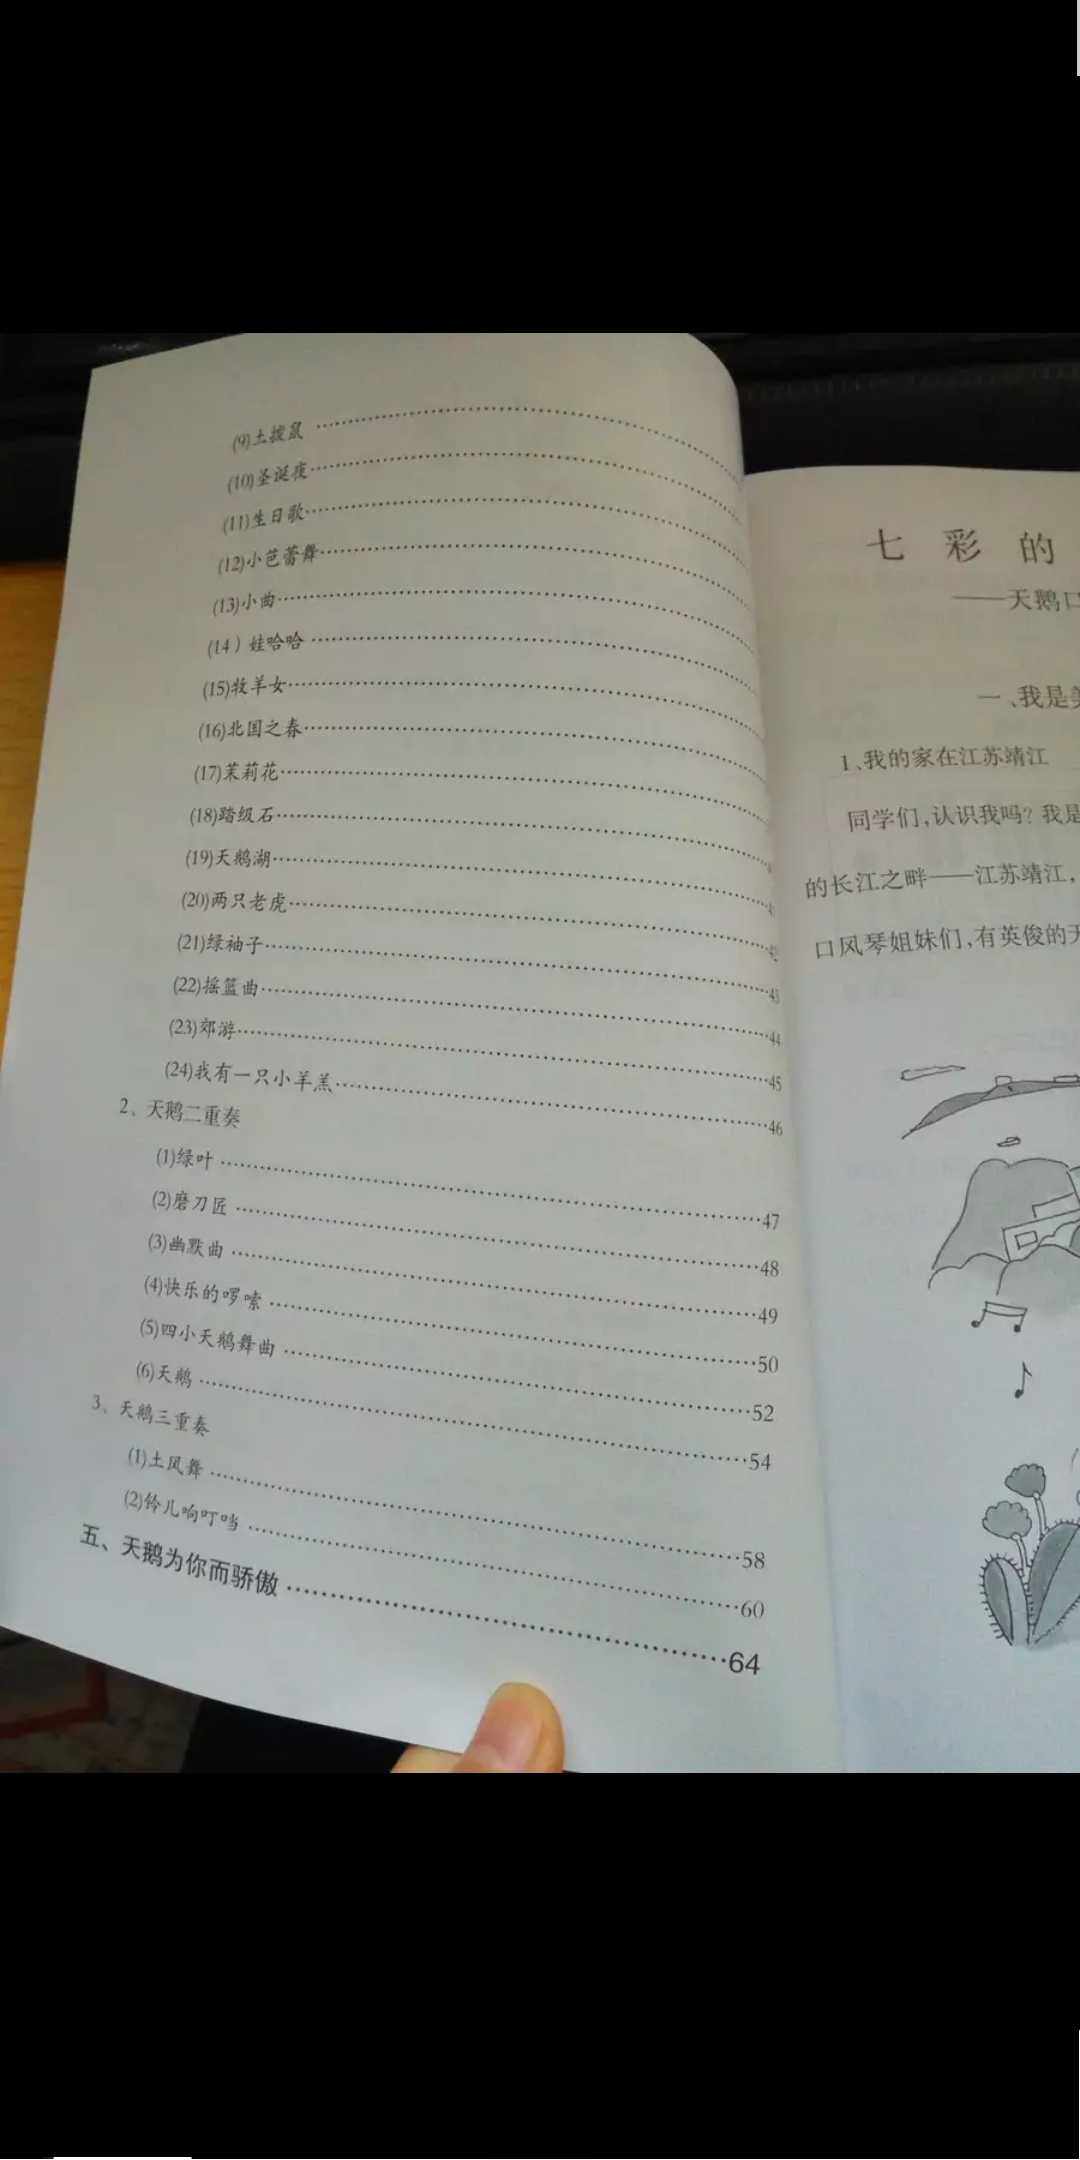 (9)土拨鼠
(10)圣诞夜
(11)生日歌
(12)小芭蕾舞
(13)小曲
(14）娃哈哈
(15)牧羊女
(16)北国之春
(17)茉莉花
(18)踏级石
(19)天鹅湖 41
(20)两只老虎 42
(21)绿袖子 43
(22)摇篮曲 44
(23)郊游 45
(24)我有一只小羊羔 46
2、天鹅二重奏
(1)绿叶 47
(2)磨刀匠 48
(3)幽默曲 49
(4)快乐的啰嗦 50
(5)四小天鹅舞曲 52
(6)天鹅 54
3、天鹅三重奏
(1)土风舞 58
(2)铃儿响叮当 60
五、天鹅为你而骄傲 64
七彩的
——天鹅口
一、我是美
1、我的家在江苏靖江
同学们,认识我吗? 我是
的长江之畔——江苏靖江,
口风琴姐妹们,有英俊的天